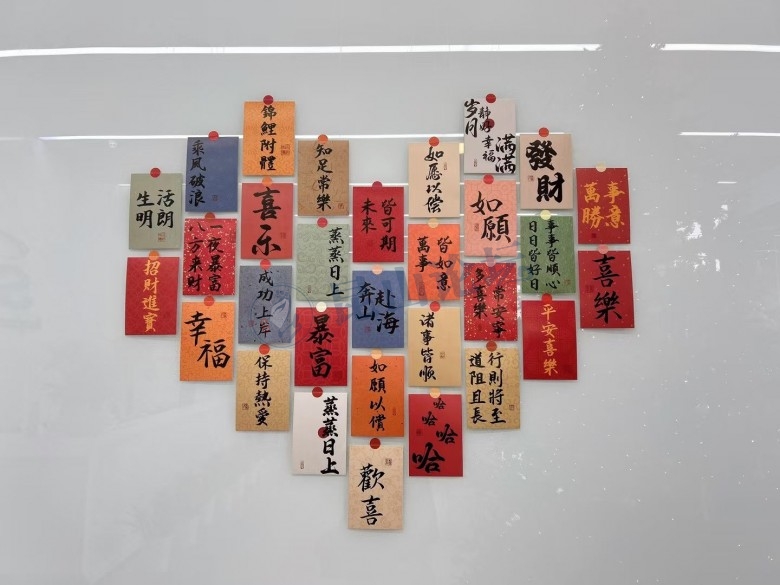 生活
明朗
招財進寶
乘風破浪
一夜暴富
八方来财
幸福
錦鯉附體
喜乐
成功上岸
保持熱愛
知足常樂
蒸蒸日上
暴富
蒸蒸日上
未來
皆可期
奔赴
山海
如願以償
歡喜
如愿以偿
萬事
皆如意
诸事皆順
哈哈哈哈
岁月
静好
幸福
满满
如願
多喜樂
常安寧
道阻且長
行則將至
發財
事事皆順心
日日皆好日
平安喜樂
萬事
勝意
喜樂